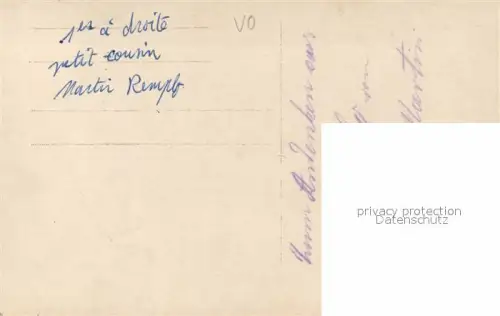 1er à droite
petit cousin
Martin Rempf
VO
Zum Andenken aus
von
Martin
privacy protection
Datenschutz